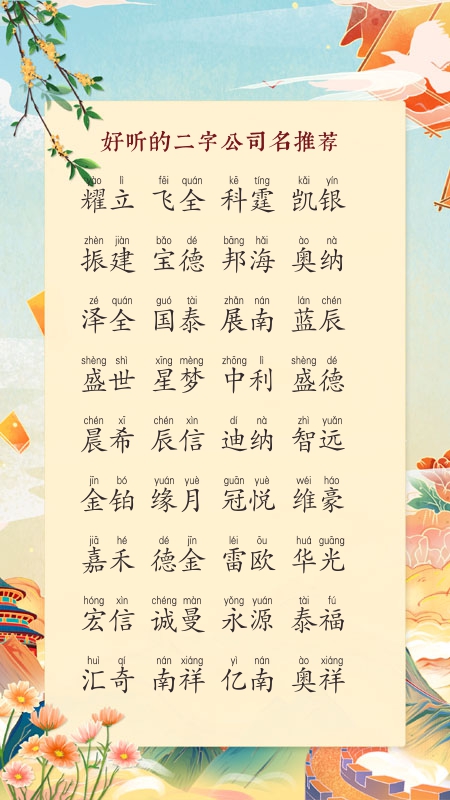 好听的二字公司名推荐
yào lì fēi quán kē tíng kǎi yín
耀立 飞全 科霆 凯银
zhèn jiàn bǎo dé bāng hǎi ào nà
振建 宝德 邦海 奥纳
zé quán guó tài zhǎn nán lán chén
泽全 国泰 展南 蓝辰
shèng shì xīng mèng zhōng lì shèng dé
盛世 星梦 中利 盛德
chén xī chén xìn dí nà zhì yuǎn
晨希 辰信 迪纳 智远
jīn bó yuán yuè guān yuè wéi háo
金铂 缘月 冠悦 维豪
jiā hé dé jīn léi ōu huá guāng
嘉禾 德金 雷欧 华光
hóng xìn chéng màn yǒng yuán tài fú
宏信 诚曼 永源 泰福
huì qí nán xiáng yì nán ào xiáng
汇奇 南祥 亿南 奥祥